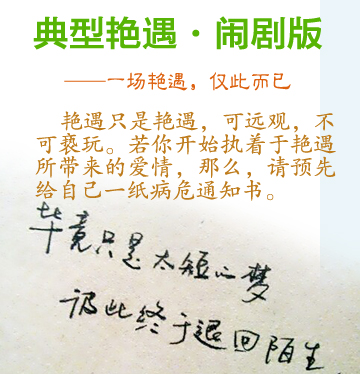 典型艳遇·闹剧版
——一场艳遇，仅此而已
艳遇只是艳遇，可远观，不
可亵玩。若你开始执着于艳遇
所带来的爱情，那么，请预先
给自己一纸病危通知书。
毕竟只是太短的梦
彼此终于退回陌生